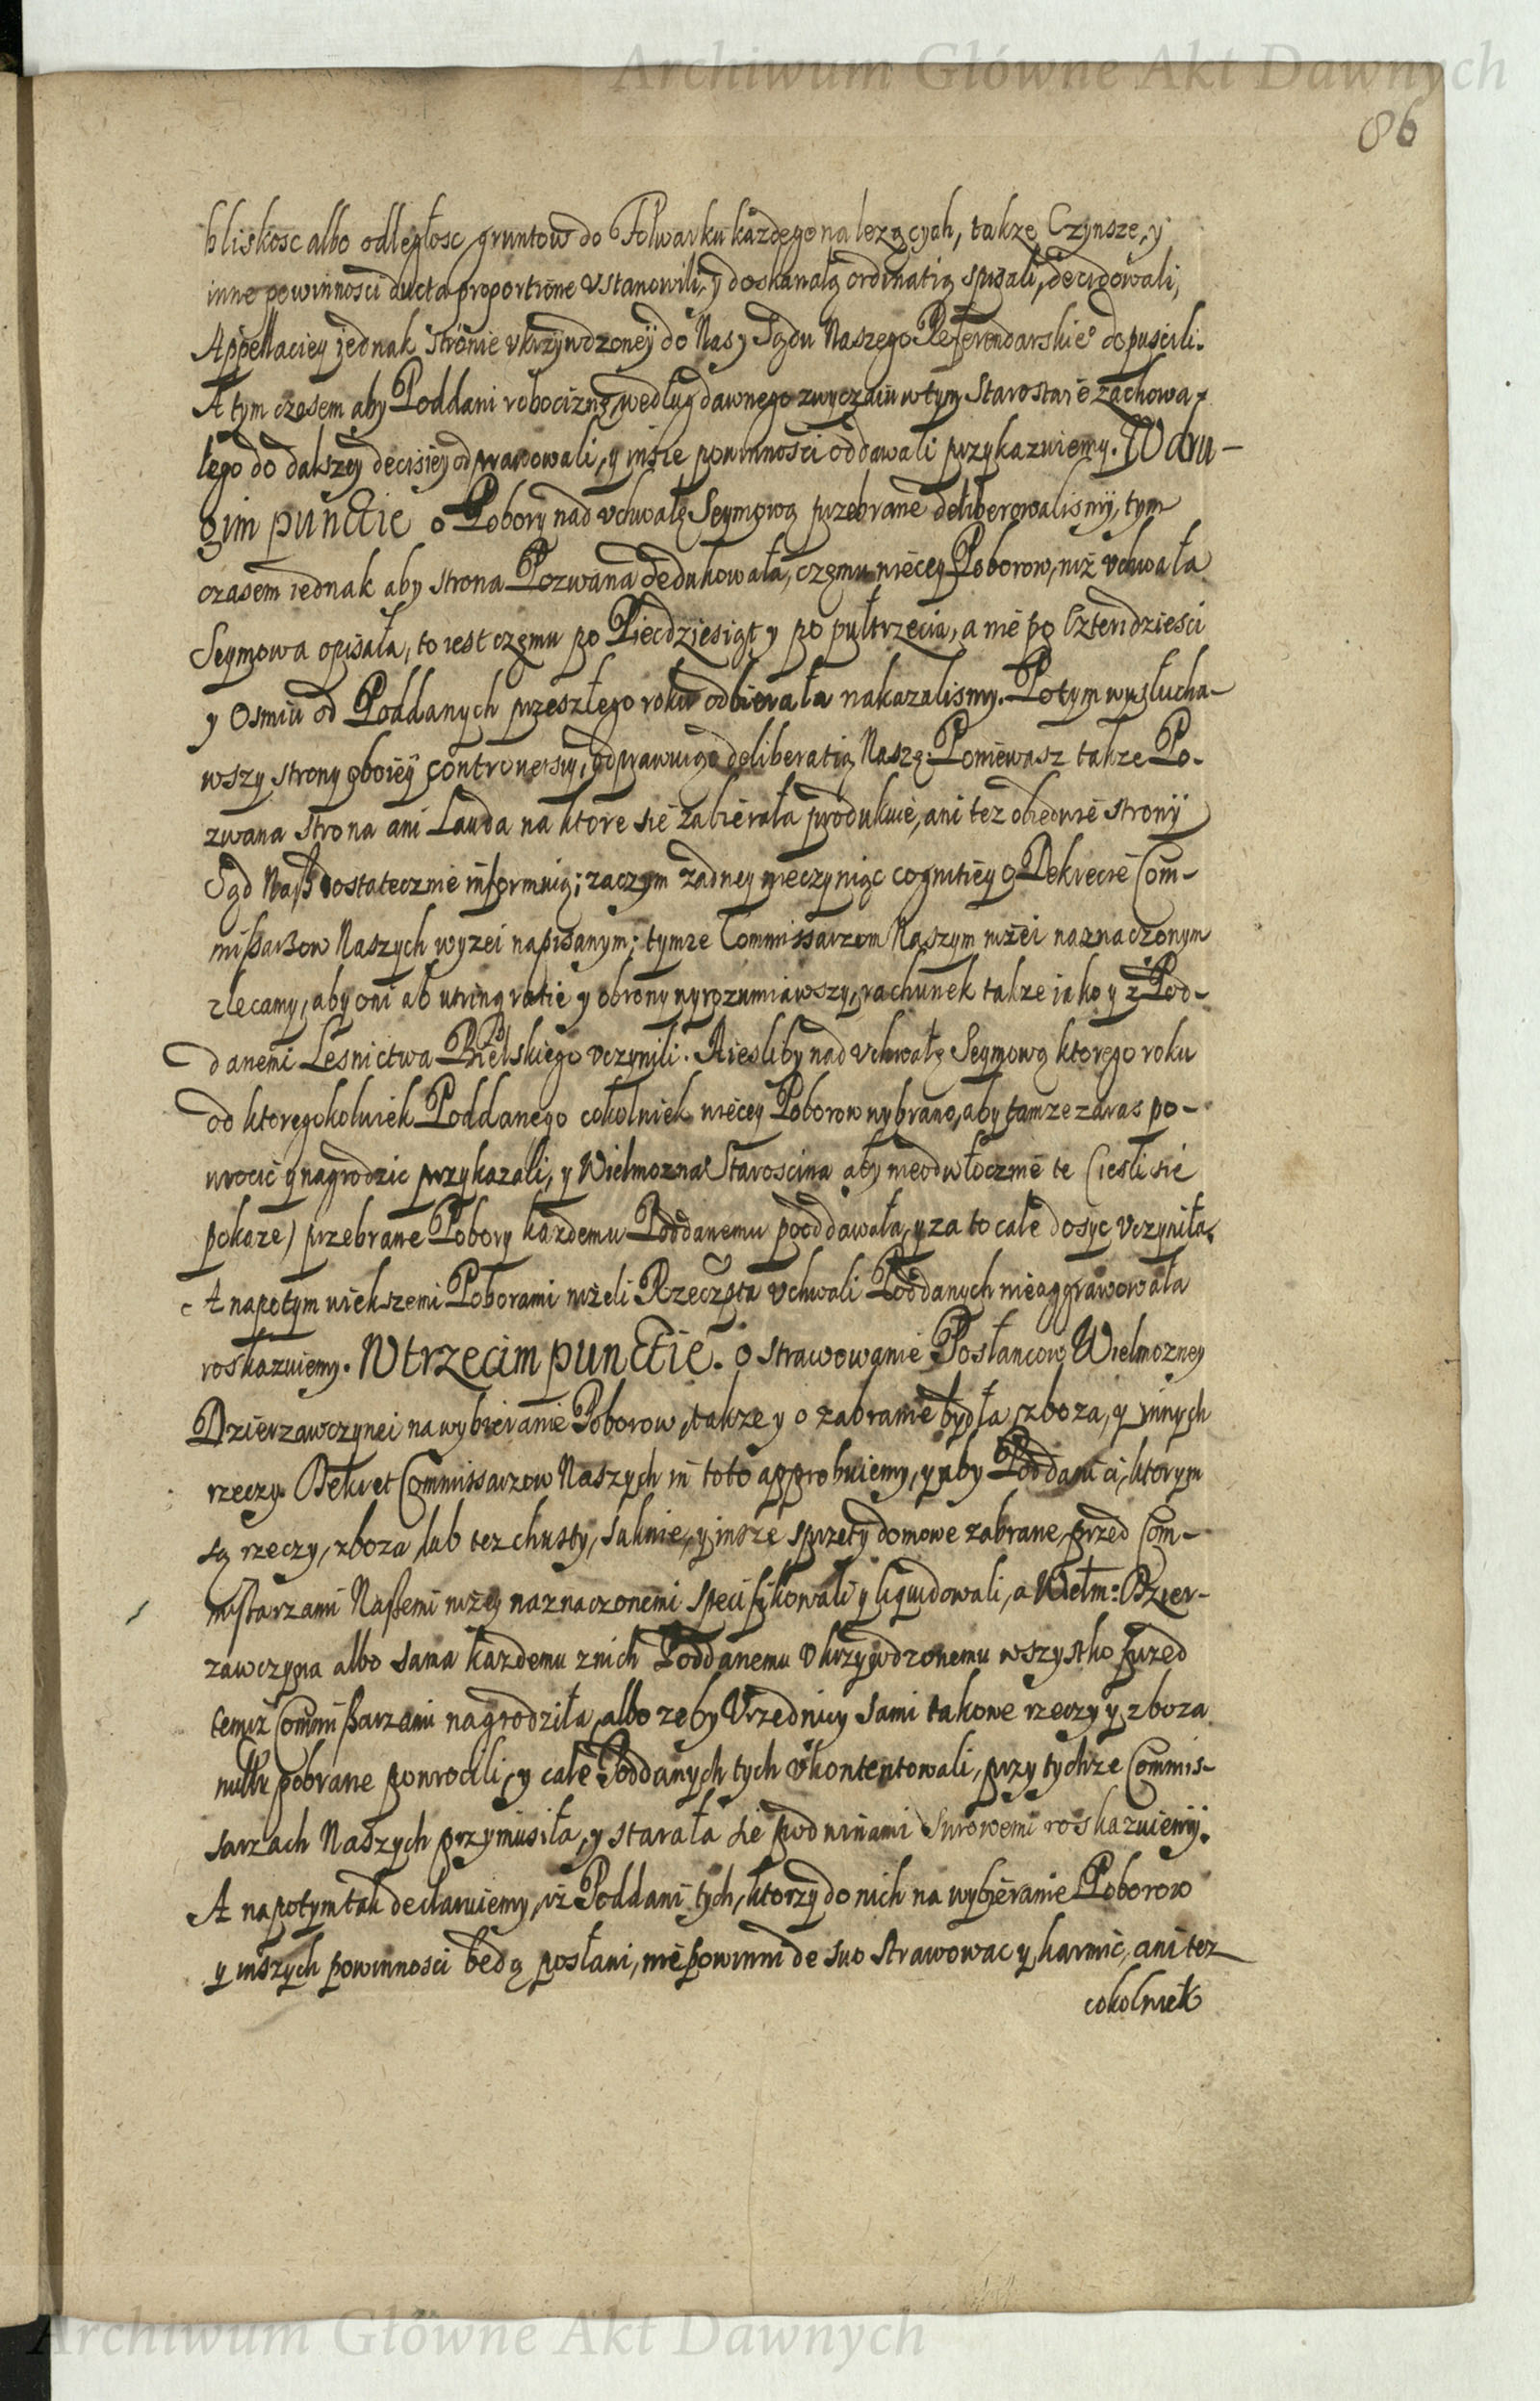 Archiwum Główne Akt Dawnych
86
bliskosc albo odległosc gruntow do Folwarku kazdego nalezących, takze Czynsze, y
inne powinnosci ducta proportione vstanowili, y doskanałą ordinatią spisali, decidowali,
Appellaciey jednak stronie vkrzywdzoney do Nas y Sądu Naszego Referendarskie° dopuscili.
A tym czasem aby Poddani robociznę według dawnego zwyczaiu w tym Starostwie zachowa-
łego do dalszey decisiey odprawowali, y insze powinnosci oddawali przykazuiemy. W dru-
gim punctie o Pobory nad vchwałę Seymową przebrane deliberowalismy, tym
czasem iednak aby strona Pozwana dedukowała, czemu więcey Poborow, niż vchwała
Seymowa opisała, to iest czemu po Piecdziesiąt y po pułtrzecia, a nie po Czterdziesci
y Osmiu od Poddanych przeszłego roku odbierała nakazalismy. Potym wysłucha-
wszy strony oboiey controwersiy, odprawuiąc deliberatią Naszę: Poniewasz takze Po-
zwana strona ani Lauda na ktore się zabierała produkuie, ani tez obiedwie strony
Sąd Nasz dostatecznie informuią; zaczym zadney nieczyniąc cognitiey o Dekrecie Com-
missarzow Naszych wyzei napisanym; tymze Commissarzom Naszym niżei naznaczonym
zlecamy, aby oni ab utrinq ratie y obrony wyrozumiawszy, rachunek takze iako y z Pod-
danemi Lesnictwa Bielskiego vczynili. A iesliby nad vchwałę Seymową ktorego roku
od ktoregokolwiek Poddanego cokolwiek więcey Poborow wybrano, aby tamze zaras po-
wrocic y nagrodzic przykazali, y Wielmozna Staroscina aby nieodwłocznie te (iesli się
pokaze) przebrane Pobory kazdemu Poddanemu pooddawała, y za to całe dosyc vczyniła.
A napotym większemi Poborami nizeli Rzeczpta vchwali Poddanych nieaggrawowała
roskazuiemy. W trzecim punctie. o strawowanie Posłancow Wielmozney
Dzierzawczynei na wybieranie Poborow, takze y o zabranie bydła, zboza, y innych
rzeczy. Dekret Commissarzow Naszych in toto approbuiemy, y aby Poddani ci, ktorym
są rzeczy, zboza lub tez chusty, suknie, y insze sprzęty domowe zabrane, przed Com-
missarzami Naszemi nizey naznaczonemi specifikowali y liquidowali, a Wielm: Dzier-
zawczyna albo sama kazdemu z nich Poddanemu vkrzywdzonemu wszystko przed
temiz Commissarzami nagrodziła, albo zeby Vrzędnicy sami takowe rzeczy y zboza
pobrane powrocili, y całe Poddanych tych vkontentowali, przy tychze Commis-
sarzach Naszych przymusiła, y starała się pod winami surowemi roskazuiemy.
A napotym tak declaruiemy, iz Poddani tych, ktorzy do nich na wybieranie Poborow
y inszych powinnosci będą posłani, nie powinni de suo strawowac y karmic, ani tez
cokolwiek
Archiwum Główne Akt Dawnych